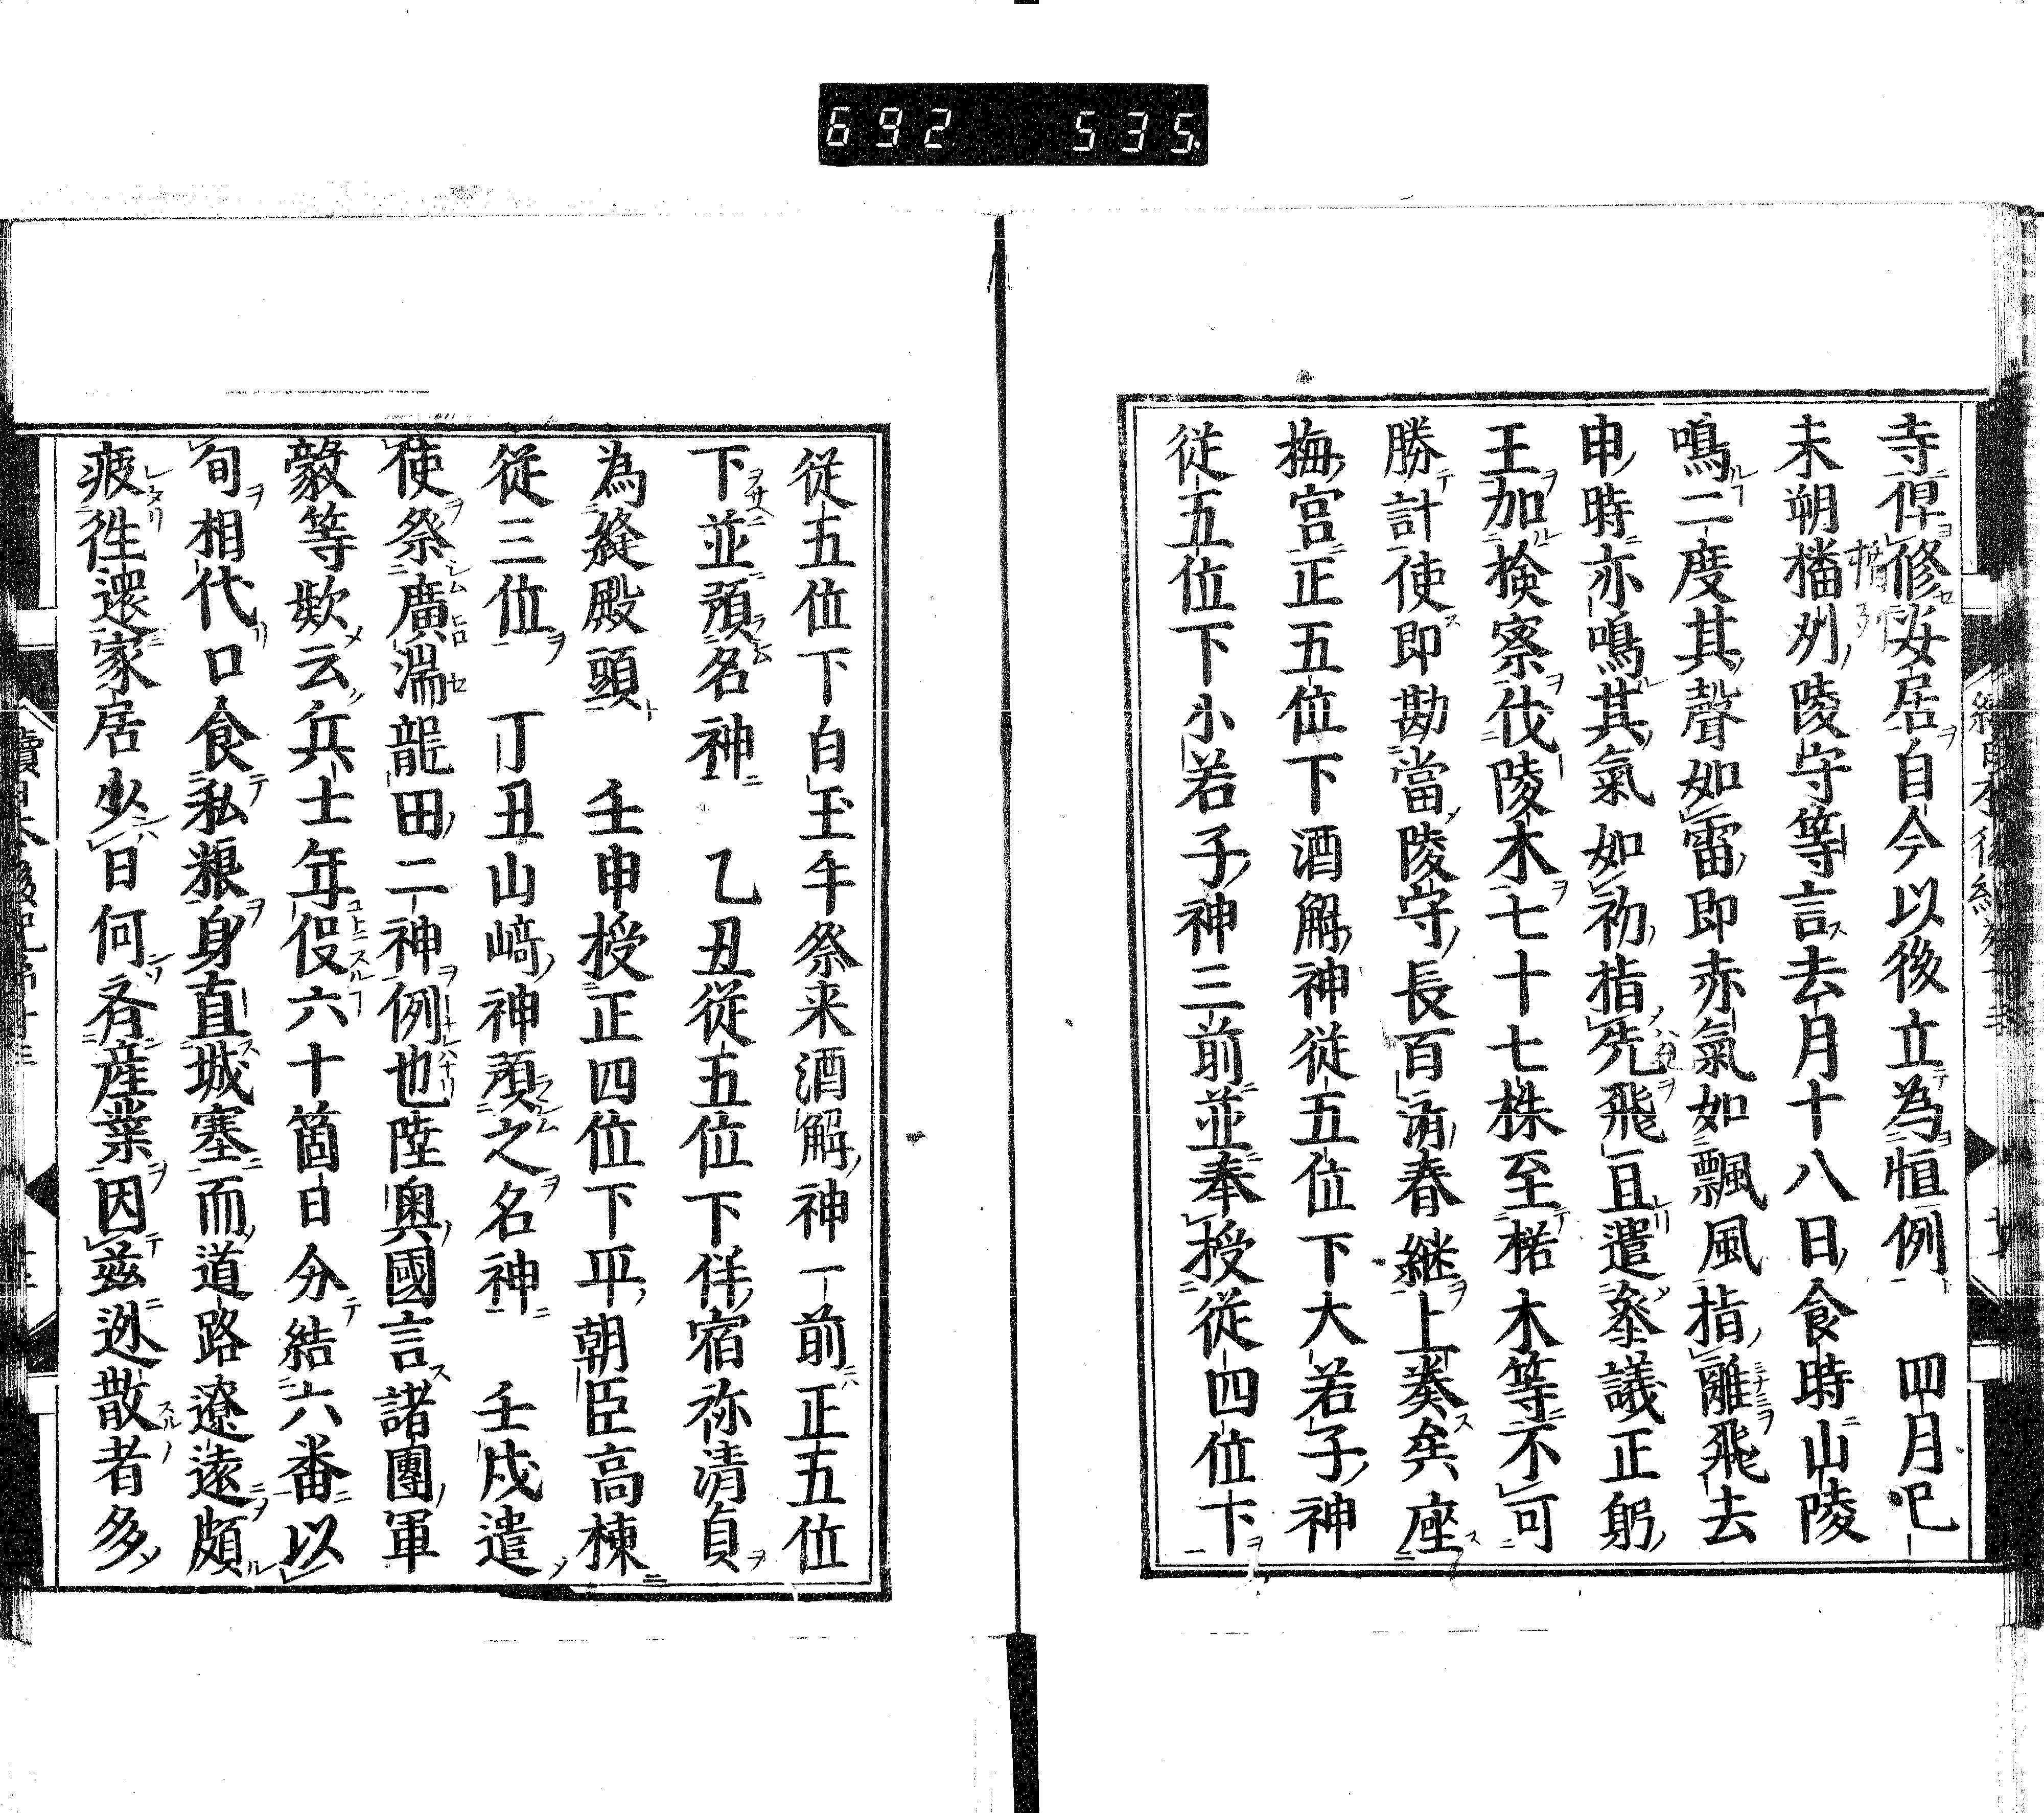 692 535
寺俾修安居自今以後立為恒例 四月巳
未朔楯列陵守等言去月十八日食時山陵
鳴二度其聲如雷即赤氣如飄風指離飛去
申時亦鳴其氣如初指兊飛亘遣參議正躬
王加檢察伐陵木七十七株至楉木等不可
勝計使即勘當陵守長百済春継上奏矣座
梅宮正五位下酒解神從五位下大若子神
從五位下小若子神三前並奉授從四位下
從五位下自玉手祭来酒解神一前正五位
下並預名神 乙丑從五位下伴宿祢清貞
為縫殿頭 壬申授正四位下平朝臣高棟
從三位 丁丑山﨑神預之名神 壬戌遣
使祭廣湍龍田二神例也陸奥國言諸團軍
毅等欵云兵士年役六十箇日分結六番以
旬相代口食私粮身直城塞而道路遼遠頗
疲徃還家居少日何脊產業因兹逃散者多